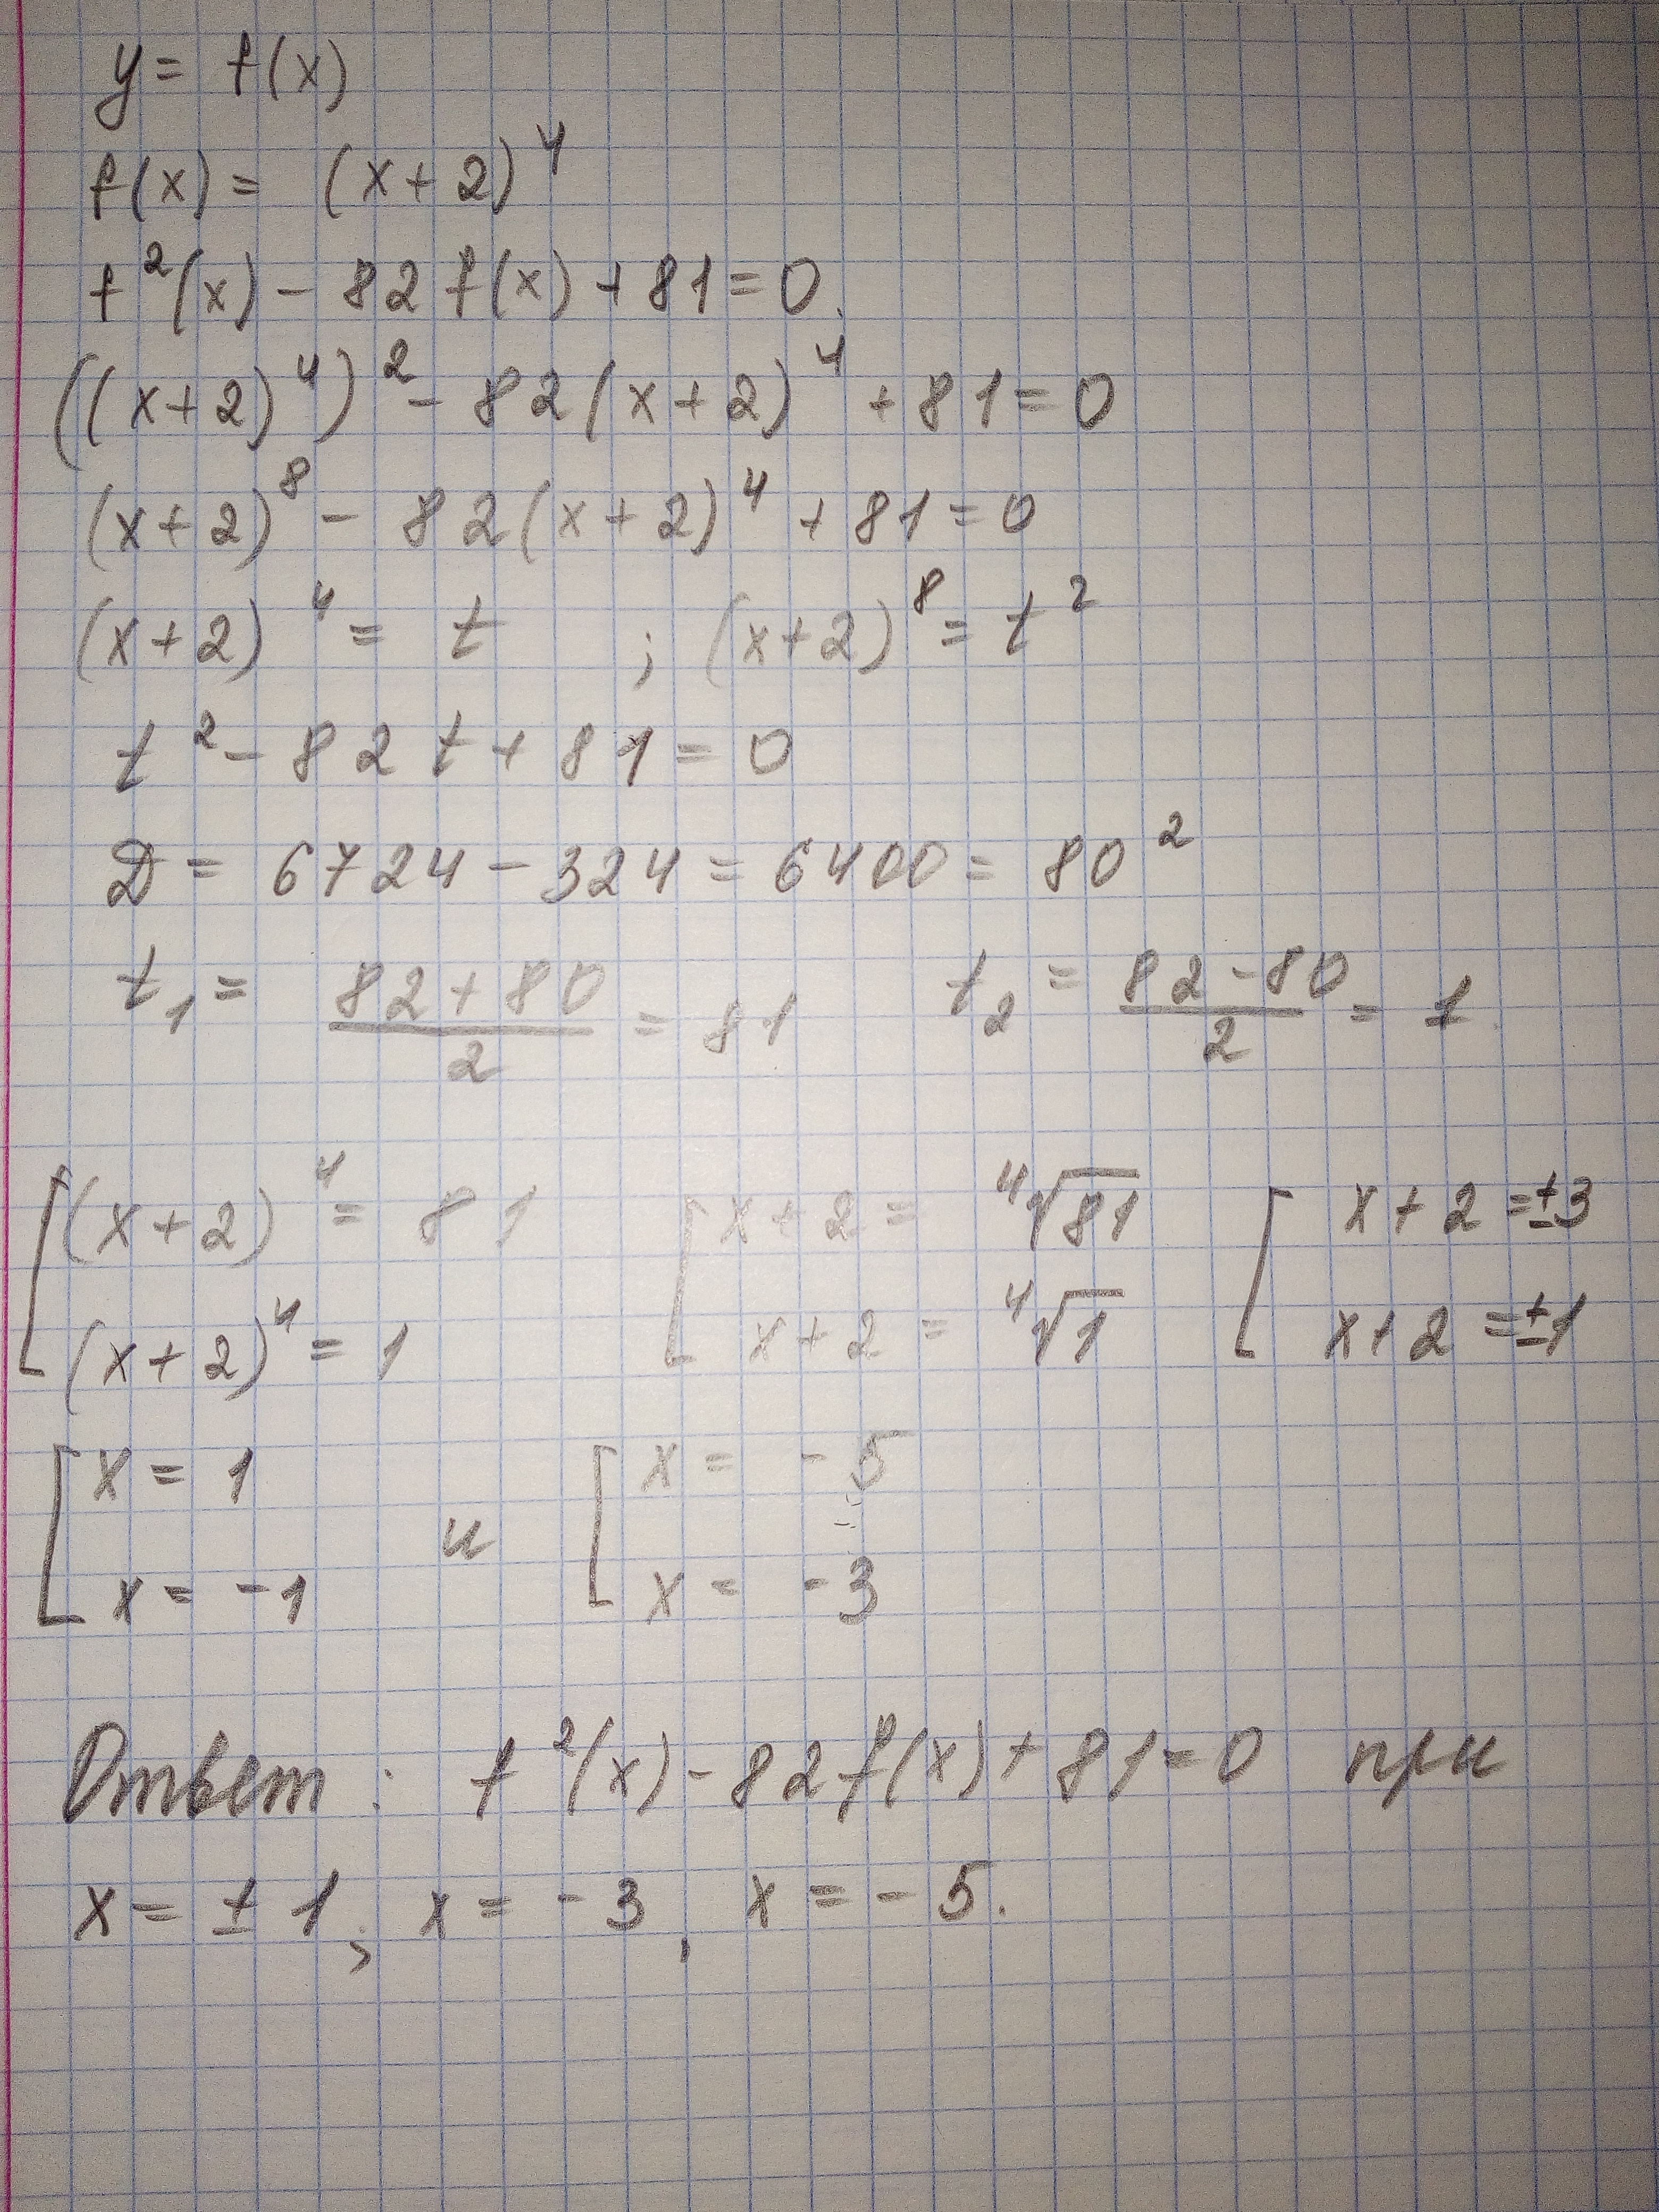 y = f(x)
f(x) = (x+2)⁴
f²(x) - 82 f(x) + 81 = 0.
((x+2)⁴)² - 82(x+2)⁴ + 81 = 0
(x+2)⁸ - 82(x+2)⁴ + 81 = 0
(x+2)⁴ = t ; (x+2)⁸ = t²
t² - 82t + 81 = 0
D = 6724 - 324 = 6400 = 80²
t₁ = (82+80)/2 = 81 t₂ = (82-80)/2 = 1
[(x+2)⁴ = 81 [x+2 = ⁴√81 [x+2 = ±3
(x+2)⁴ = 1 x+2 = ⁴√1 x+2 = ±1
[x = 1 и [x = -5
x = -1 x = -3
Ответ: f²(x) - 82f(x) + 81 = 0 при
x = ± 1; x = -3, x = -5.